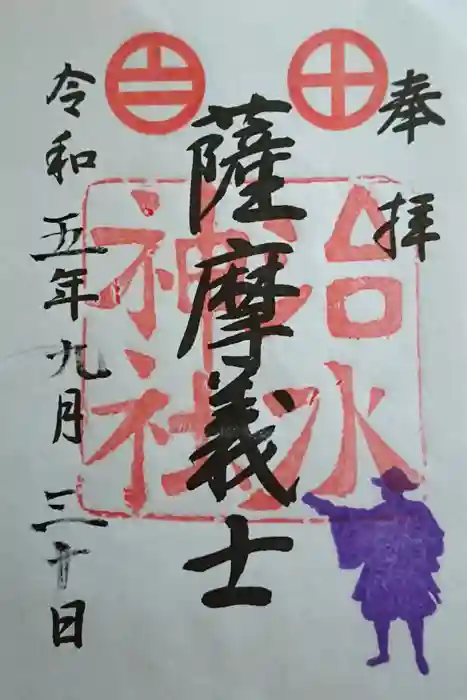 奉拝
薩摩義士
治水
神社
令和五年九月三十日